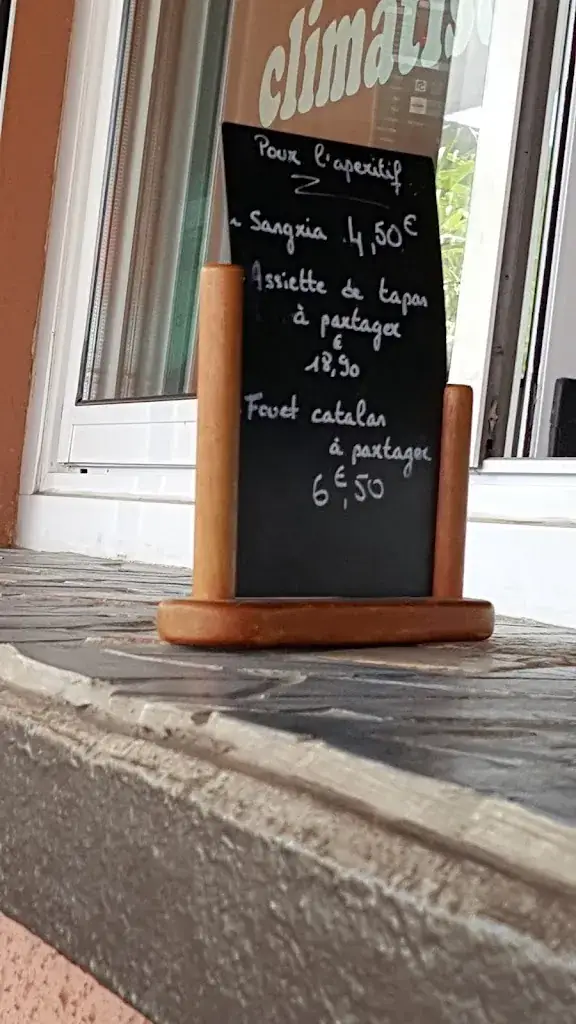 climatis
Pour l'aperitif
- Sangria 4,50€
- Assiette de tapas
à partager
€
18,90
- Fouet catalan
à partager
6€,50